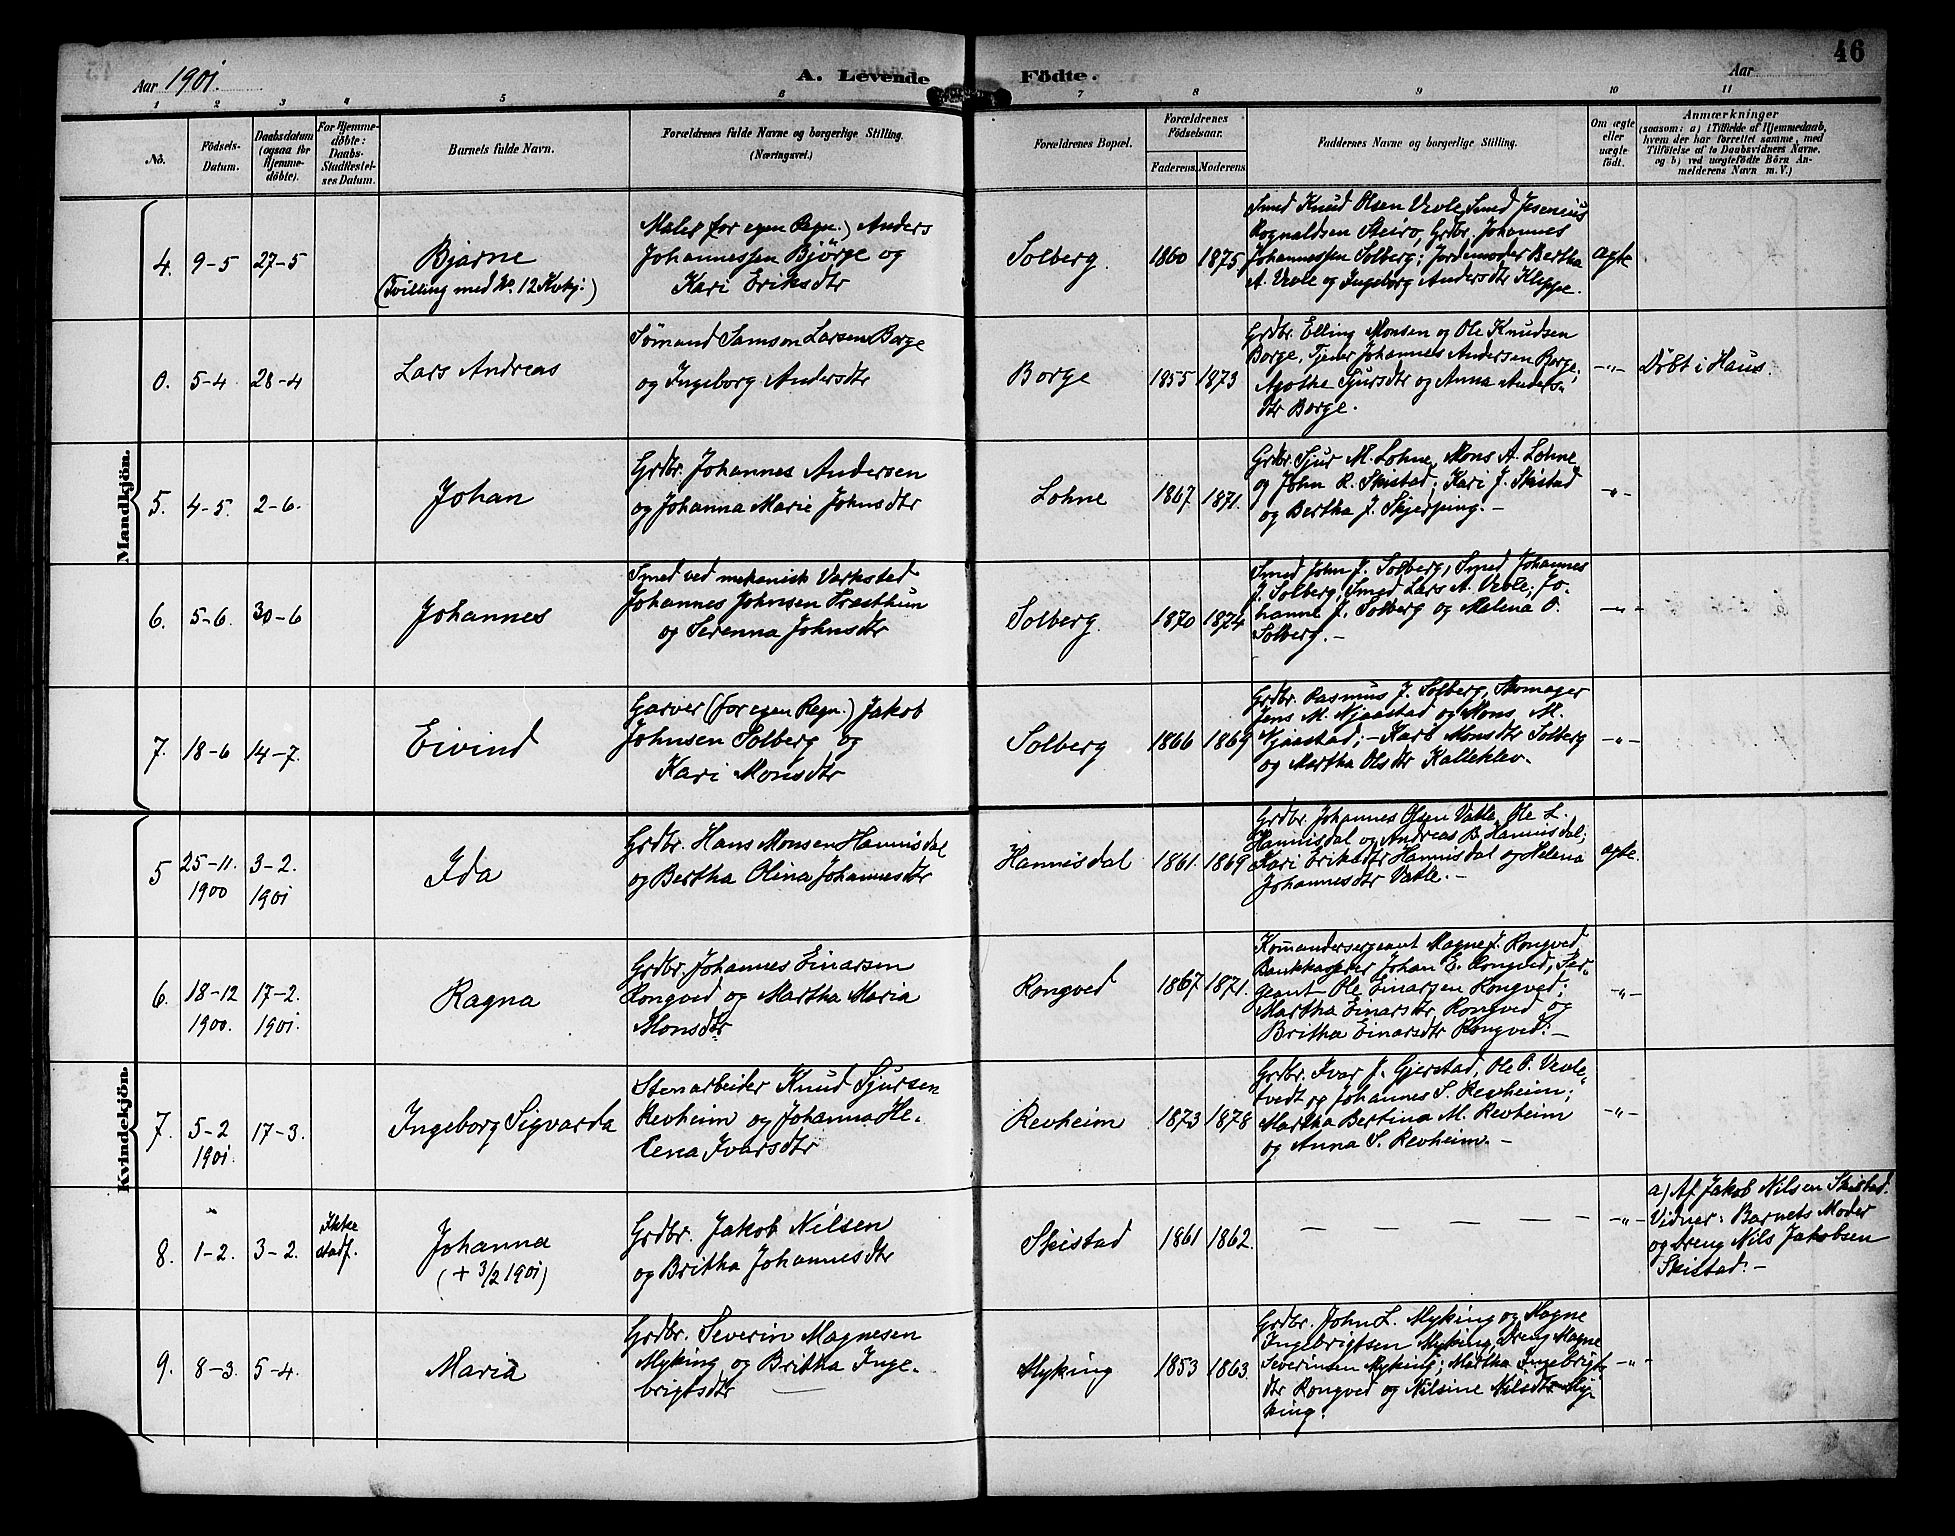 Aar 1901.
A. Levende
Födte.
Aar
46
1 2 3 4 5 6 7 8 9 10 11
No.
Födsels-
Datum.
Daabsdatum
(ogsaa for
Hjemme-
döbte).
For Hjemme-
döbte:
Daabs-
Stadfestel-
ses Datum.
Barnets fulde Navn.
Forældrenes fulde Navne og borgerlige Stilling.
(Næringsvei.)
Forældrenes Bopæl.
Forældrenes
Födselsaar.
Faderens. Moderens
Faddernes Navne og borgerlige Stilling.
Om ægte
eller
uægte
födt.
Anmærkninger
(saasom: a) i Tilfælde af Hjemmedaab,
hvem der har forrettet samme, med
Tilföielse af to Daabsvidners Navne,
og b) ved uægtefödte Börn An-
melderens Navn m. V.)
Mandkjön.
4. 9-5 27-5
Bjarne
(Tvilling med No. 12 Kvkj.)
Maler (for egen Regn.) Anders
Johannessen Bjørge og
Kari Eriksdtr
Solberg. 1860 1875
Smed Knud Olsen Vevle, Smed Jesenius
Rognaldsen Steiro, Grdbr. Johannes
Johannessen Solberg; Jordemoder Bertha
A. Vevle og Ingeborg Andersdtr Kleppe.
ægte
0. 5-4. 28-4
Lars Andreas
Sømand Samson Larsen Borge
og Ingeborg Andersdtr
Borge 1855 1873
Grdbr. Elling Monsen og Ole Knudsen
Borge, Tjener Johannes Andersen Borge;
Agathe Sjursdtr og Anna Anders-
dtr Borge.
-"- Døbt i Haus.
5. 4-5. 2-6.
Johan
Grdbr. Johannes Andersen
og Johanna Marie Johnsdtr
Lohne 1867. 1871.
Grdbr. Sjur M. Lohne, Mons A. Lohne
og John R. Skistad; Kari J. Skistad
og Bertha J. Skjerping. -
-"-
6. 5-6. 30-6
Johannes
Smed ved mekanisk Værksted
Johannes Johnsen Træsthun
og Serenna Johnsdtr
Solberg. 1870 1874
Smed John J. Solberg, Smed Johannes
J. Solberg, Smed Lars A. Vevle; Jo-
hanne J. Solberg og Malena O.
Solberg. -
-"-
7. 18-6 14-7.
Eivind
Garver (for egen Regn.) Jakob
Johnsen Solberg og
Kari Monsdtr
Solberg 1866 1869
Grdbr. Rasmus J. Solberg, Skomager
Jens M. Njaastad og Mons M.
Njaastad; - Kari Monsdtr Solberg
og Martha Olsdtr Kalleklev.
-"-
Kvindekjön.
5 25-11. 1900 3-2. 1901
Ida
Grdbr. Hans Monsen Hannisdal
og Bertha Olina Johannesdtr
Hannisdal 1861. 1869
Grdbr. Johannes Olsen Vatle, Ole L.
Hannisdal og Andreas B. Hannisdal;
Kari Eriksdtr Hannisdal og Helena
Johannesdtr Vatle. -
ægte.
6. 18-12 1900. 17-2. 1901.
Ragna
Grdbr. Johannes Einarsen
Rongved og Martha Maria
Monsdtr
Rongved 1867 1871.
Komandersergeant Magne J. Rongved,
Bankkasserer Johan E. Rongved, Ser-
geant Ole Einarsen Rongved;
Martha Einarsdtr Rongved og
Britha Einarsdtr Rongved. -
-"-
7. 5-2 1901. 17-3.
Ingeborg Sigvarda
Stenarbeider Knud Sjursen
Revheim og Johanna He-
lena Ivarsdtr
Revheim 1873 1878
Grdbr. Ivar J. Gjerstad, Ole P. Vevle-
tvedt og Johannes S. Revheim;
Martha Bertina M. Revheim
og Anna S. Revheim. -
-"-
8. 1-2. 3-2. Ikke
stadf.
Johanna
(+ 3/2 1901)
Grdbr. Jakob Nilsen
og Britha Johannesdtr
Skistad 1861 1862.
— — — — —
-"-
a) Af Jakob Nilsen Skistad.
Vidner: Barnets Moder
og Dreng Nils Jakobsen
Skistad. -
9. 8-3. 5-4.
Maria
Grdbr. Severin Magnesen
Myking og Britha Inge-
brigtsdtr
Myking 1853 1863.
Grdbr. John L. Myking og Magne
Ingebrigtsen Myking, Dreng Magne
Severinsen Myking; Martha Ingebrigts-
dtr Rongved og Nilsine Nilsdtr My-
king.
-"-